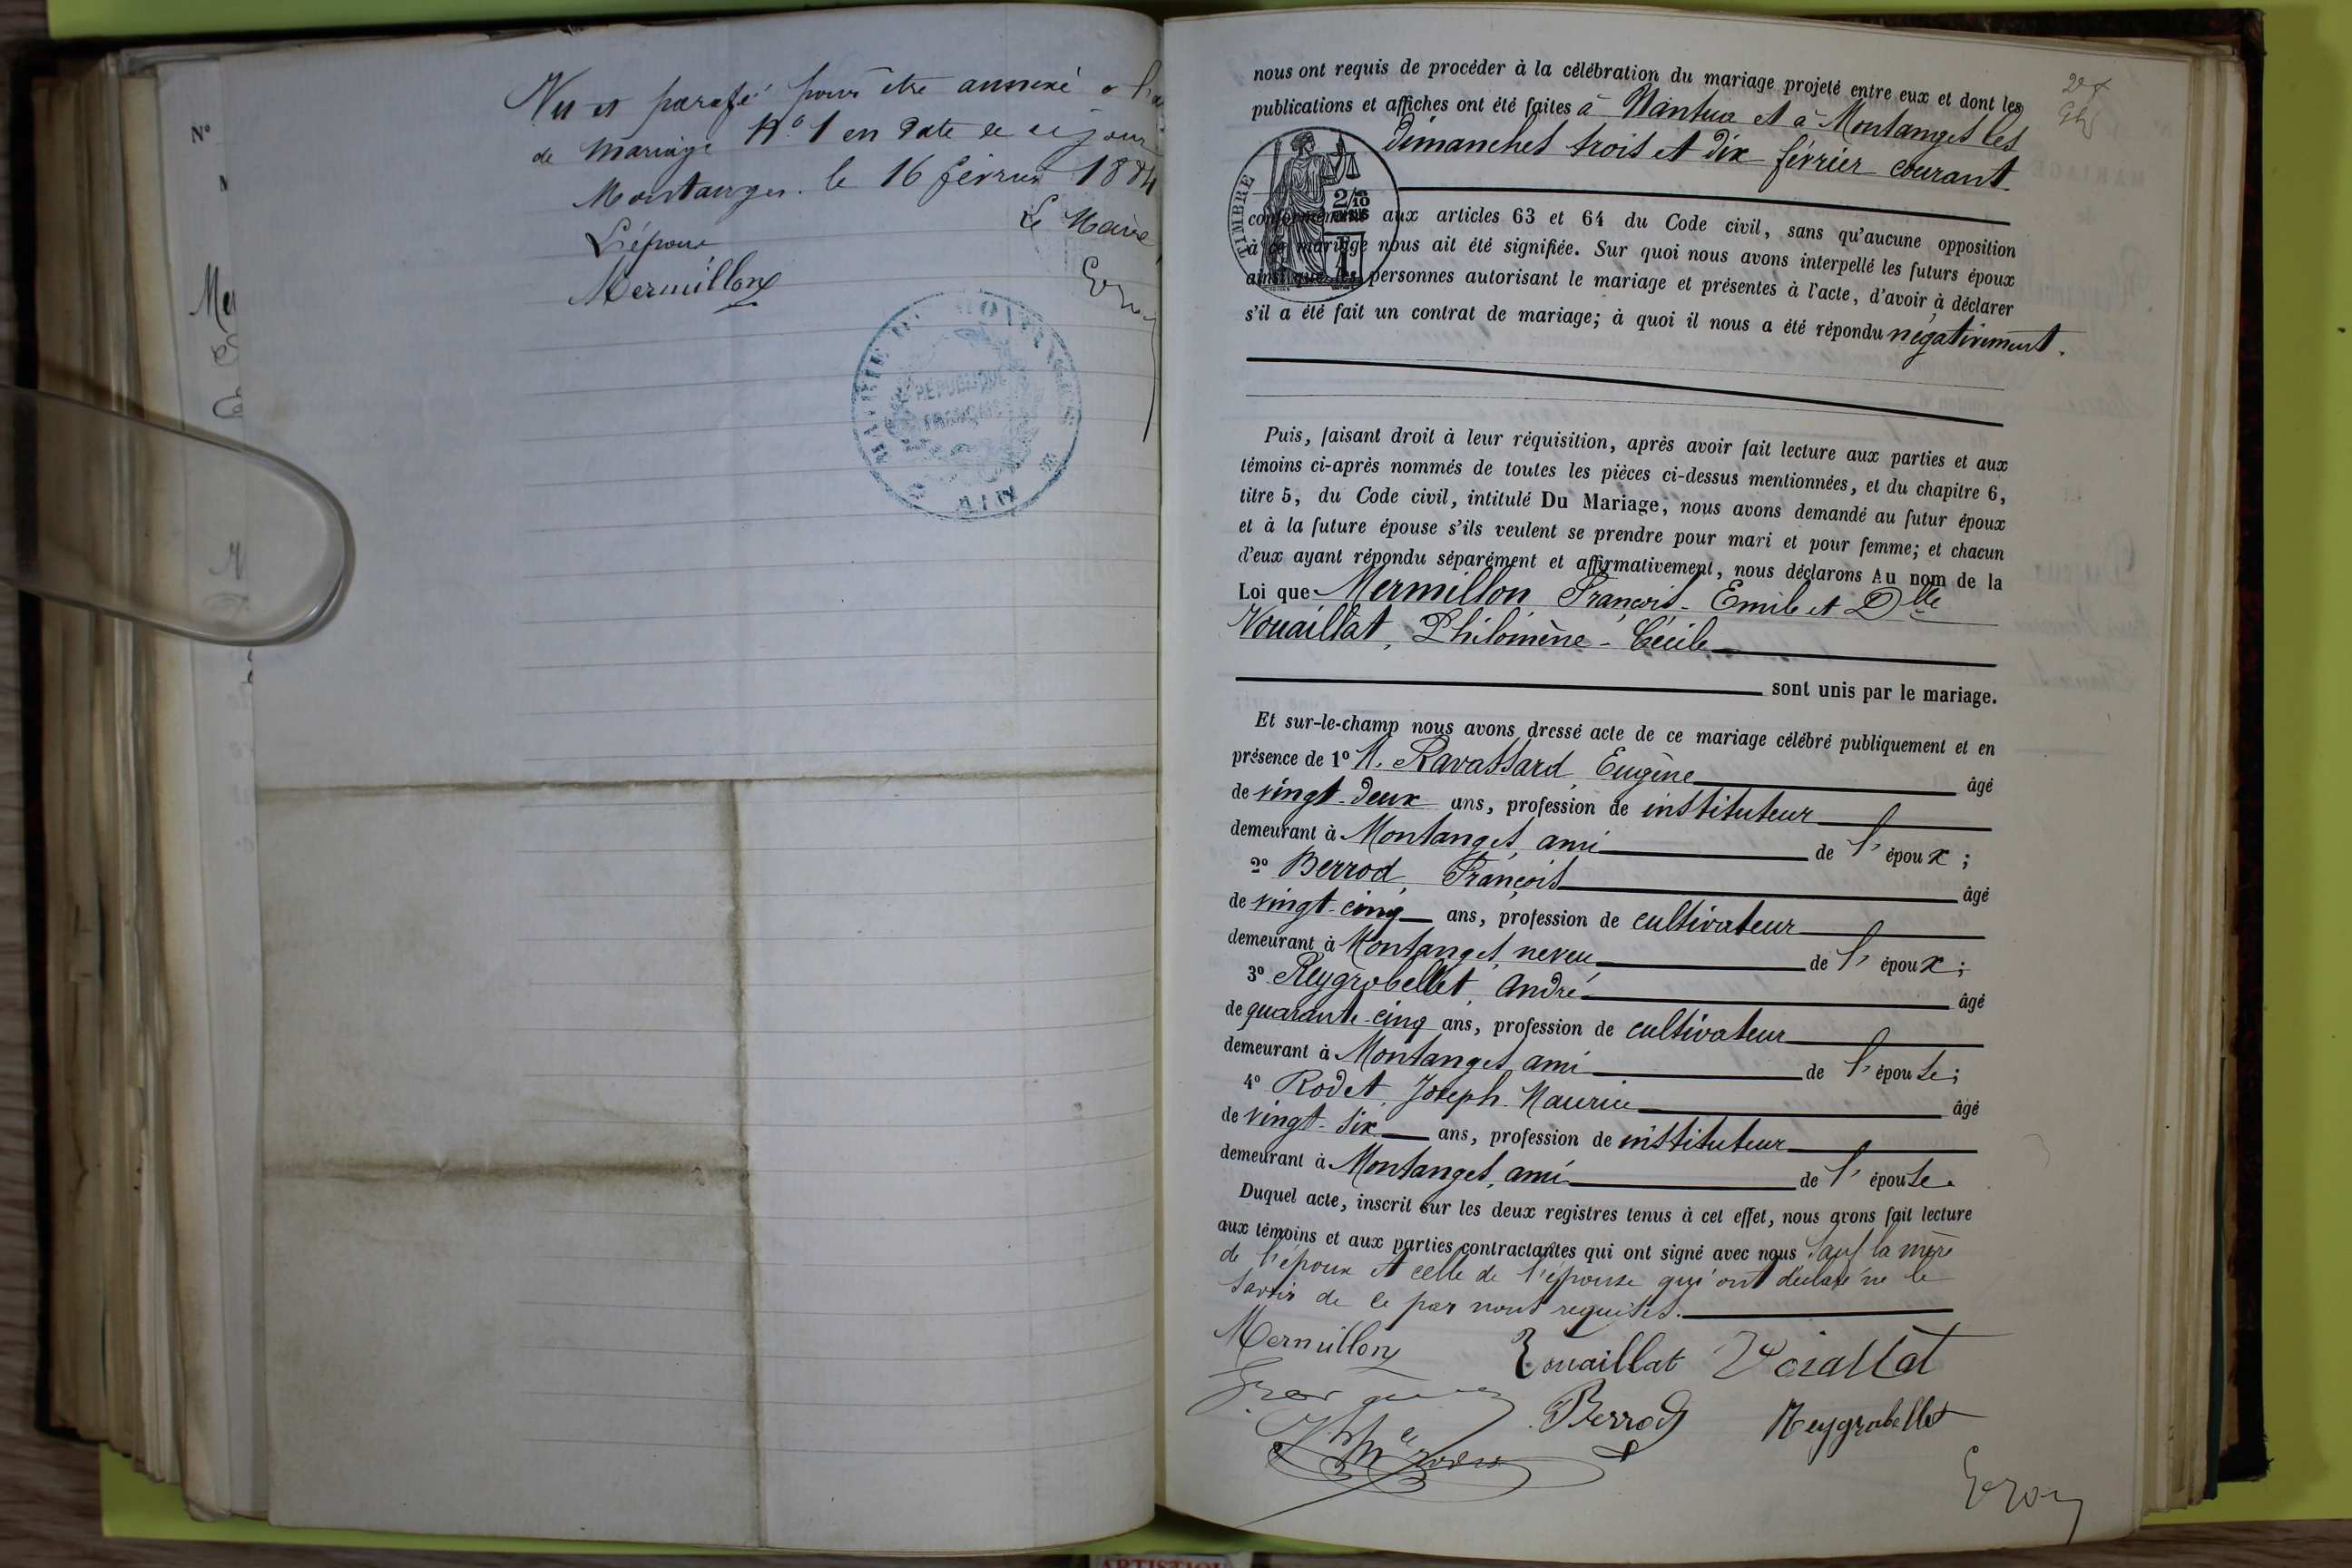 Vu et parafé pour être annexé a l'a
de mariage N.º 1 en date de ce jour
Montanges. le 16 février 1884
Le Maire
L'époux
Mermillon
MAIRIE DE MONTANGES
RÉPUBLIQUE
FRANÇAISE
AIN
Nº
Mer
nous ont requis de procéder à la célébration du mariage projeté entre eux et dont les
publications et affiches ont été faites à Nantua et à Montanges les
dimanches trois et dix février courant
TIMBRE
2/10
EN SUS
conformément aux articles 63 et 64 du Code civil, sans qu'aucune opposition
à ce mariage nous ait été signifiée. Sur quoi nous avons interpellé les futurs époux
ainsi que les personnes autorisant le mariage et présentes à l'acte, d'avoir à déclarer
s'il a été fait un contrat de mariage; à quoi il nous a été répondu négativement.
Puis, faisant droit à leur réquisition, après avoir fait lecture aux parties et aux
témoins ci-après nommés de toutes les pièces ci-dessus mentionnées, et du chapitre 6,
titre 5, du Code civil, intitulé Du Mariage, nous avons demandé au futur époux
et à la future épouse s'ils veulent se prendre pour mari et pour femme; et chacun
d'eux ayant répondu séparément et affirmativement, nous déclarons Au nom de la
Loi que Mermillon, François-Emile et Dlle
Vouaillat, Philomène-Cécile
sont unis par le mariage.
Et sur-le-champ nous avons dressé acte de ce mariage célébré publiquement et en
présence de 1º M. Ravassard, Eugène âgé
de vingt-deux ans, profession de instituteur
demeurant à Montanges, ami de l'époux;
2º Berrod, François âgé
de vingt-cinq ans, profession de cultivateur
demeurant à Montanges, neveu de l'époux;
3º Reygrobellet, André âgé
de quarante-cinq ans, profession de cultivateur
demeurant à Montanges, ami de l'épouse;
4º Rodet, Joseph-Maurice âgé
de vingt-six ans, profession de instituteur
demeurant à Montanges, ami de l'épouse.
Duquel acte, inscrit sur les deux registres tenus à cet effet, nous avons fait lecture
aux témoins et aux parties contractantes qui ont signé avec nous sauf la mère
de l'époux et celle de l'épouse qui ont déclaré ne le
savoir de ce par nous requises.
Mermillon Vouaillat Voiallat
Berrod Reygrobellet